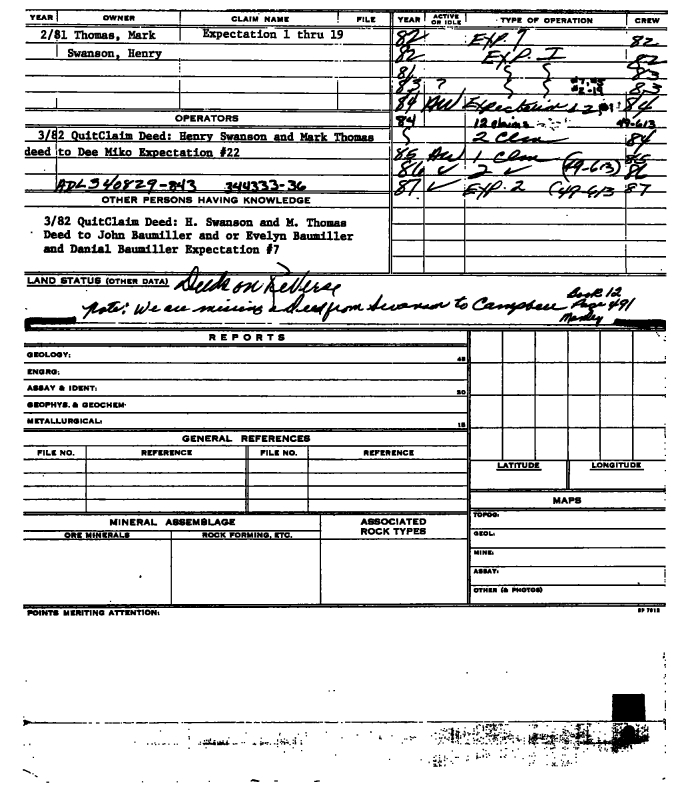 YEAR OWNER CLAIM NAME FILE YEAR ACTIVE OR IDLE TYPE OF OPERATION CREW
2/81 Thomas, Mark Expectation 1 thru 19 82 EXP. 7 82
Swanson, Henry 82 EXP. I 82
81 83
83 ? 83
84 84
OPERATORS
84 12 claims 49-613
3/82 QuitClaim Deed: Henry Swanson and Mark Thomas 2 Clm 84
deed to Dee Miko Expectation #22 85 1 Clm
86 ✓ 2 ✓ (49-613) 86
ADL 340829-843 344333-36 87 ✓ EXP. 2 (49-613 87
OTHER PERSONS HAVING KNOWLEDGE
3/82 QuitClaim Deed: H. Swanson and M. Thomas
Deed to John Baumiller and or Evelyn Baumiller
and Danial Baumiller Expectation #7
LAND STATUS (OTHER DATA) Deeds on Reverse
Note: We are missing a Deed from Swanson to Campbell Book 12
Page 491
Manley
REPORTS
GEOLOGY: 45
ENGRG:
ASSAY & IDENT: 30
GEOPHYS. & GEOCHEM:
METALLURGICAL: 15
GENERAL REFERENCES
FILE NO. REFERENCE FILE NO. REFERENCE
LATITUDE LONGITUDE
MAPS
TOPOG:
MINERAL ASSEMBLAGE ASSOCIATED ROCK TYPES
ORE MINERALS ROCK FORMING, ETC.
GEOL:
MINE:
ASSAY:
OTHER (& PHOTOS)
POINTS MERITING ATTENTION: